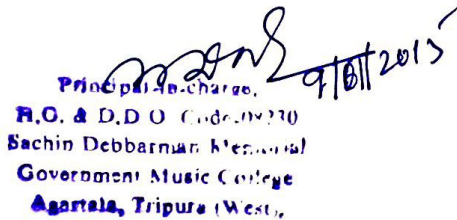 9/6/2015
Principal-in-charge,
H.O. & D.D.O. Code-
Sachin Debbarman Memorial
Government Music College
Agartala, Tripura (West),